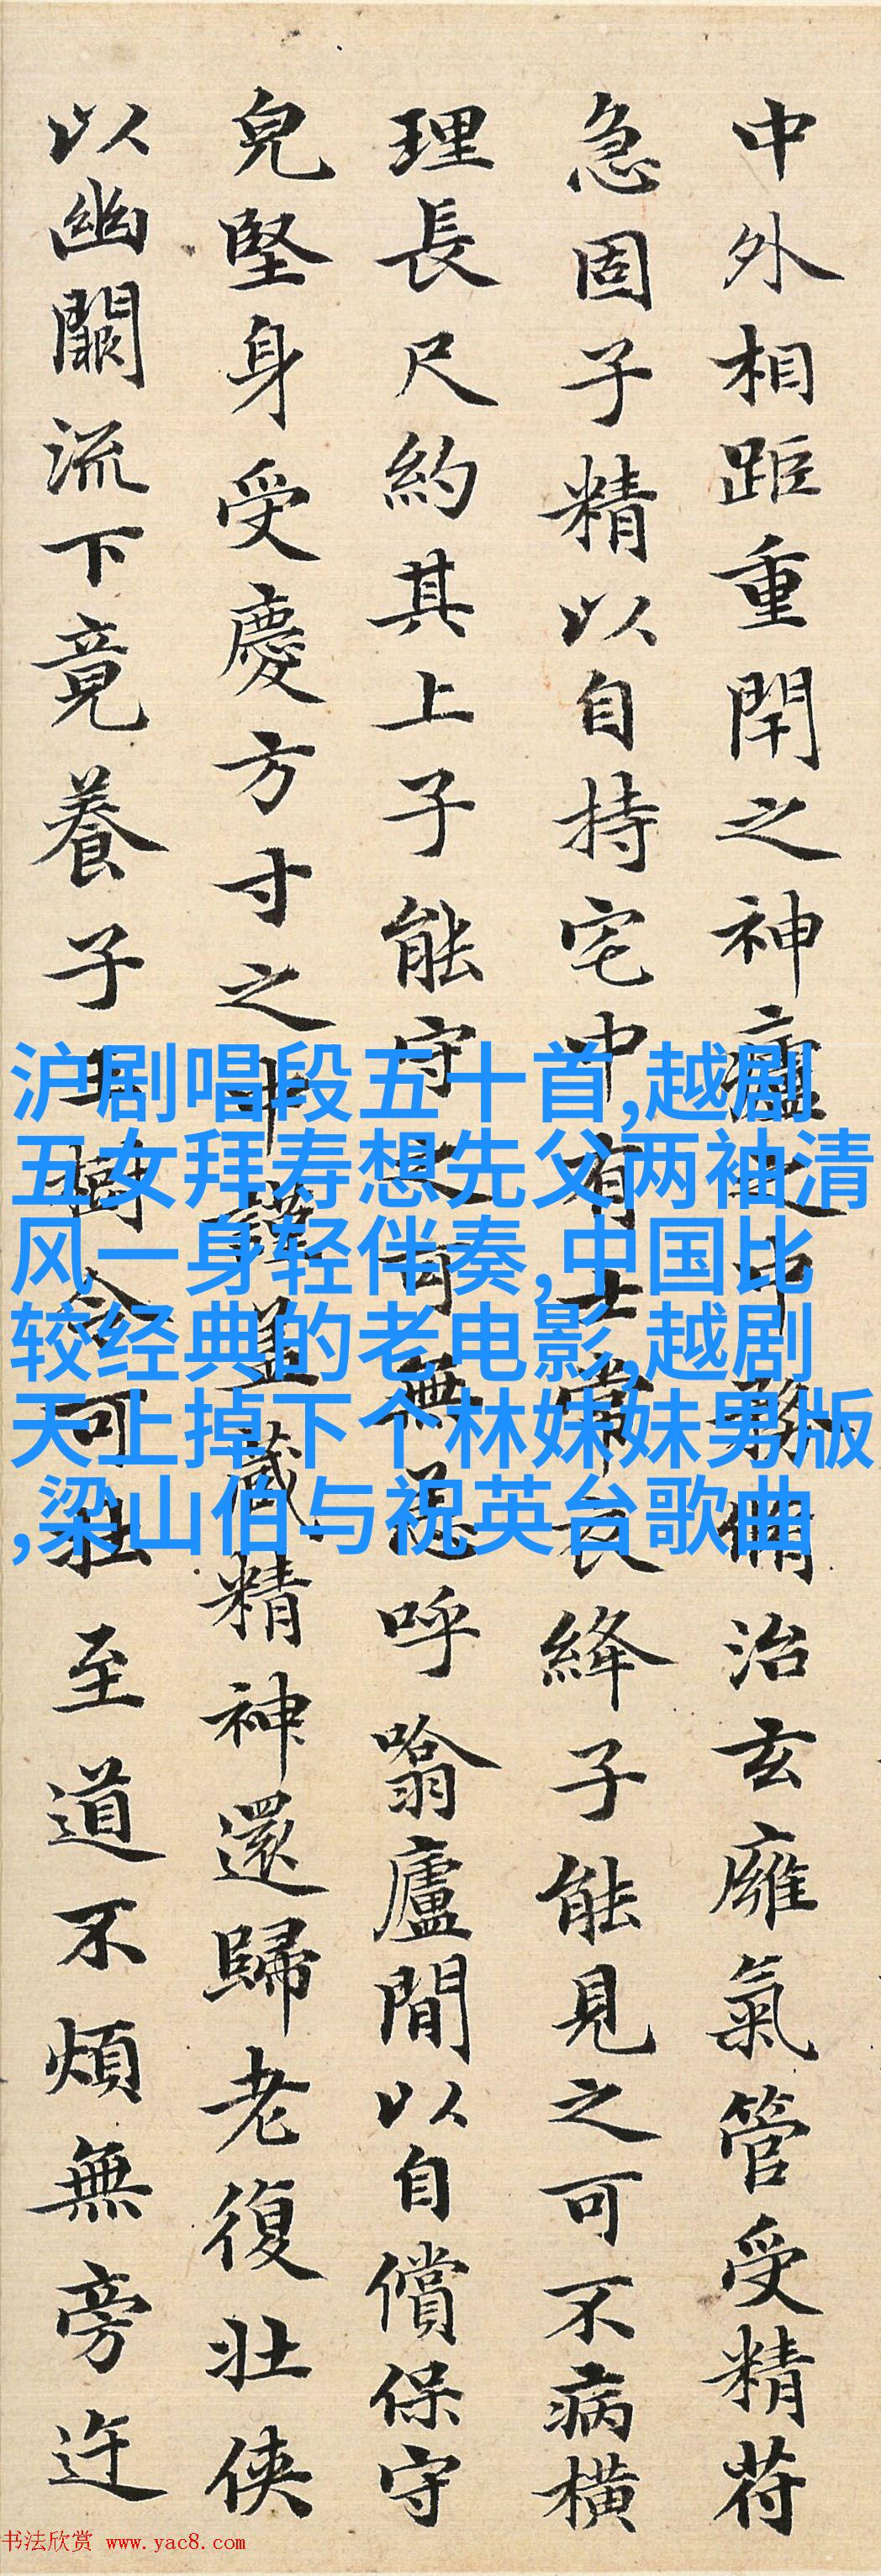 中外相距重閇之神廬之中務脩治玄廱氣管受精符
急固子精以自持宅中有士常衣絳子能見之可不病橫
理長尺約其上子能守之可無恙呼噏廬閒以自償保守
皃堅身受慶方寸之中謹盖藏精神還歸老復壯俠
以幽闕流下竟養子玉樹令可壯至道不煩無旁迕
沪剧唱段五十首,越剧
五女拜寿想先父两袖清
风一身轻伴奏,中国比
较经典的老电影,越剧
天上掉下个林妹妹男版
,梁山伯与祝英台歌曲
书法欣赏 www.yac8.com